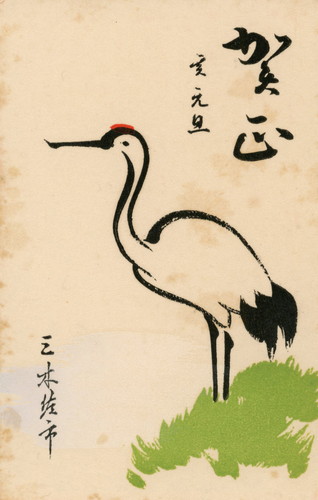 賀正
亥元旦
三木佐市